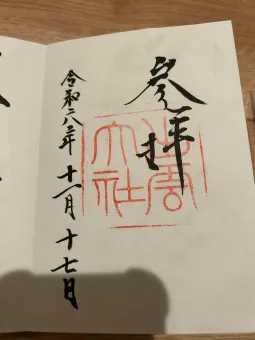 参拝
出雲
大社
令和元年十一月十七日